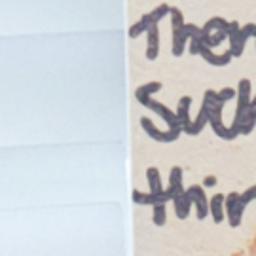 Ther
Suck
thin